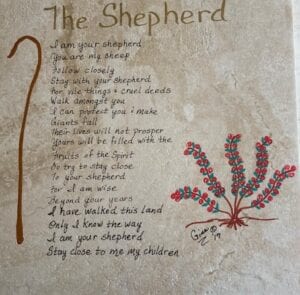 The Shepherd
I am your shepherd
You are my sheep
Follow closely
Stay with your shepherd
For vile things & cruel deeds
Walk amongst you
I can protect you & make
Giants fall
Their lives will not prosper
Yours will be filled with the
fruits of the Spirit
So try to stay close
To your shepherd
for I am wise
Beyond your years
I have walked this land
Only I know the way
I am your shepherd
Stay close to me my children